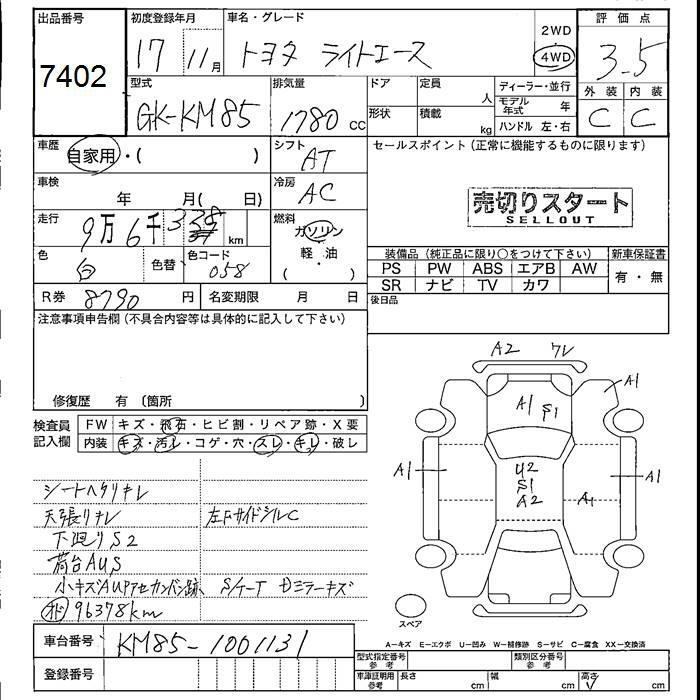 出品番号
7402
初度登録年月
17 11月
車名・グレード
トヨタ ライトエース
2WD
4WD
評価点
3.5
外装 内装
C C
型式
GK-KM85
排気量
1780 cc
ドア
定員
人
形状
積載
kg
ディーラー・並行
モデル年式 年
ハンドル 左・右
車歴
自家用・( )
シフト
AT
車検
年 月( 日)
冷房
AC
走行
9万6千 km
燃料
ガソリン
軽・油
( )
色
白
色替
色コード
058
R券 8790 円
名変期限 月 日
セールスポイント(正常に機能するものに限ります)
売切りスタート
SELLOUT
装備品(純正品に限り○をつけて下さい)
PS PW ABS エアB AW
SR ナビ TV カワ
新車保証書
有・無
後日品
注意事項申告欄(不具合内容等は具体的に記入して下さい)
修復歴 有(箇所 )
検査員記入欄
FW キズ・飛石・ヒビ割・リペア跡・X要
内装 キズ・汚レ・コゲ・穴・スレ・キレ・破レ
シートヘタリキレ
天張りキレ
左FサイドシルC
下廻りS2
荷台AUS
小キズAU
ミラーキズ
96378km
車台番号 KM85-1001131
登録番号
A2 ワレ
A1
A1 S1
A1
U2
S1
A2
A1
A1
スペア
A-キズ E-エクボ U-凹み W-補修跡 S-サビ C-腐食 XX-交換済
型式指定番号
参考
類別区分番号
参考
車庫証明用
参考
長さ cm
幅 cm
高さ cm